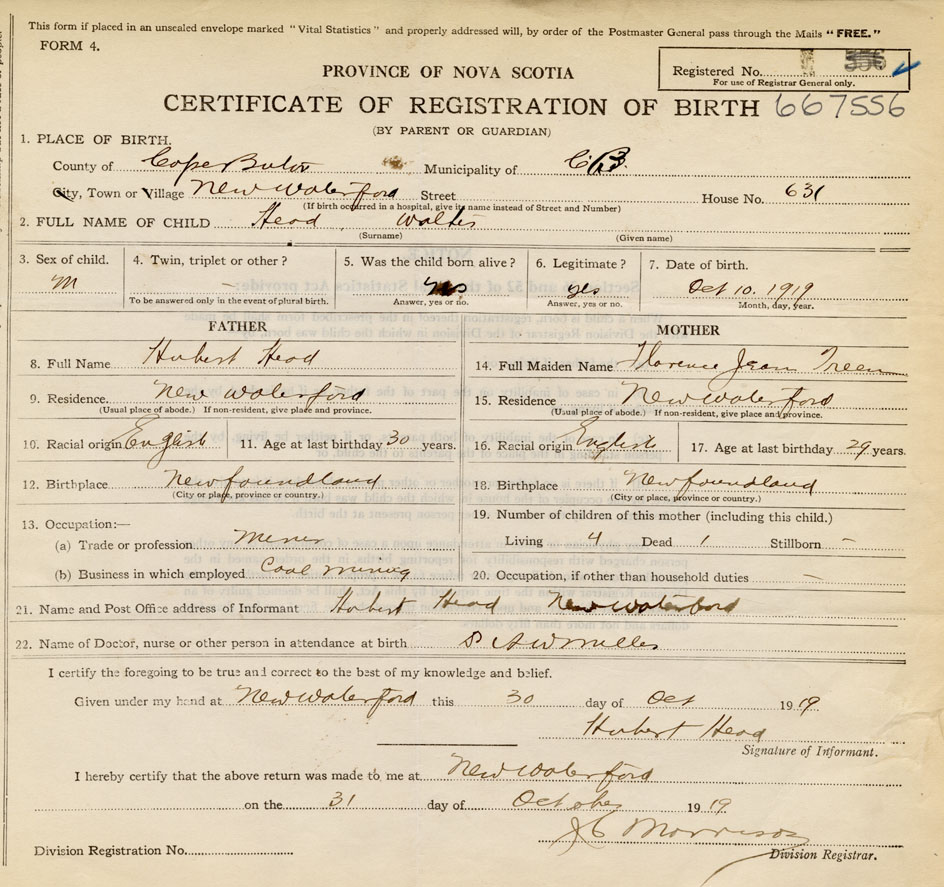 This form if placed in an unsealed envelope marked "Vital Statistics" and properly addressed will, by order of the Postmaster General pass through the Mails "FREE."
FORM 4.
PROVINCE OF NOVA SCOTIA
Registered No.
For use of Registrar General only.
CERTIFICATE OF REGISTRATION OF BIRTH 667556
(BY PARENT OR GUARDIAN)
1. PLACE OF BIRTH.
County of Cape Breton Municipality of C.B.
City, Town or Village New Waterford Street House No. 631
(If birth occurred in a hospital, give its name instead of Street and Number)
2. FULL NAME OF CHILD Head Walter
(Surname) (Given name)
3. Sex of child. 4. Twin, triplet or other? 5. Was the child born alive? 6. Legitimate? 7. Date of birth.
M - yes yes Oct 10. 1919
To be answered only in the event of plural birth. Answer, yes or no. Answer, yes or no. Month, day, year.
FATHER MOTHER
8. Full Name Hubert Head 14. Full Maiden Name Florence Jean Treen
9. Residence. New Waterford 15. Residence New Waterford
(Usual place of abode.) If non-resident, give place and province. (Usual place of abode.) If non-resident, give place and province.
10. Racial origin English 11. Age at last birthday 30 years. 16. Racial origin English 17. Age at last birthday 29 years.
12. Birthplace Newfoundland 18. Birthplace Newfoundland
(City or place, province or country.) (City or place, province or country.)
13. Occupation:— 19. Number of children of this mother (including this child.)
(a) Trade or profession Miner Living 4 Dead 1 Stillborn -
(b) Business in which employed Coal mining 20. Occupation, if other than household duties -
21. Name and Post Office address of Informant Hubert Head New Waterford
22. Name of Doctor, nurse or other person in attendance at birth Dr A W Miller
I certify the foregoing to be true and correct to the best of my knowledge and belief.
Given under my hand at New Waterford this 30 day of Oct 1919.
Hubert Head
Signature of Informant.
I hereby certify that the above return was made to me at New Waterford
on the 31 day of October 1919
Morrison
Division Registration No. Division Registrar.